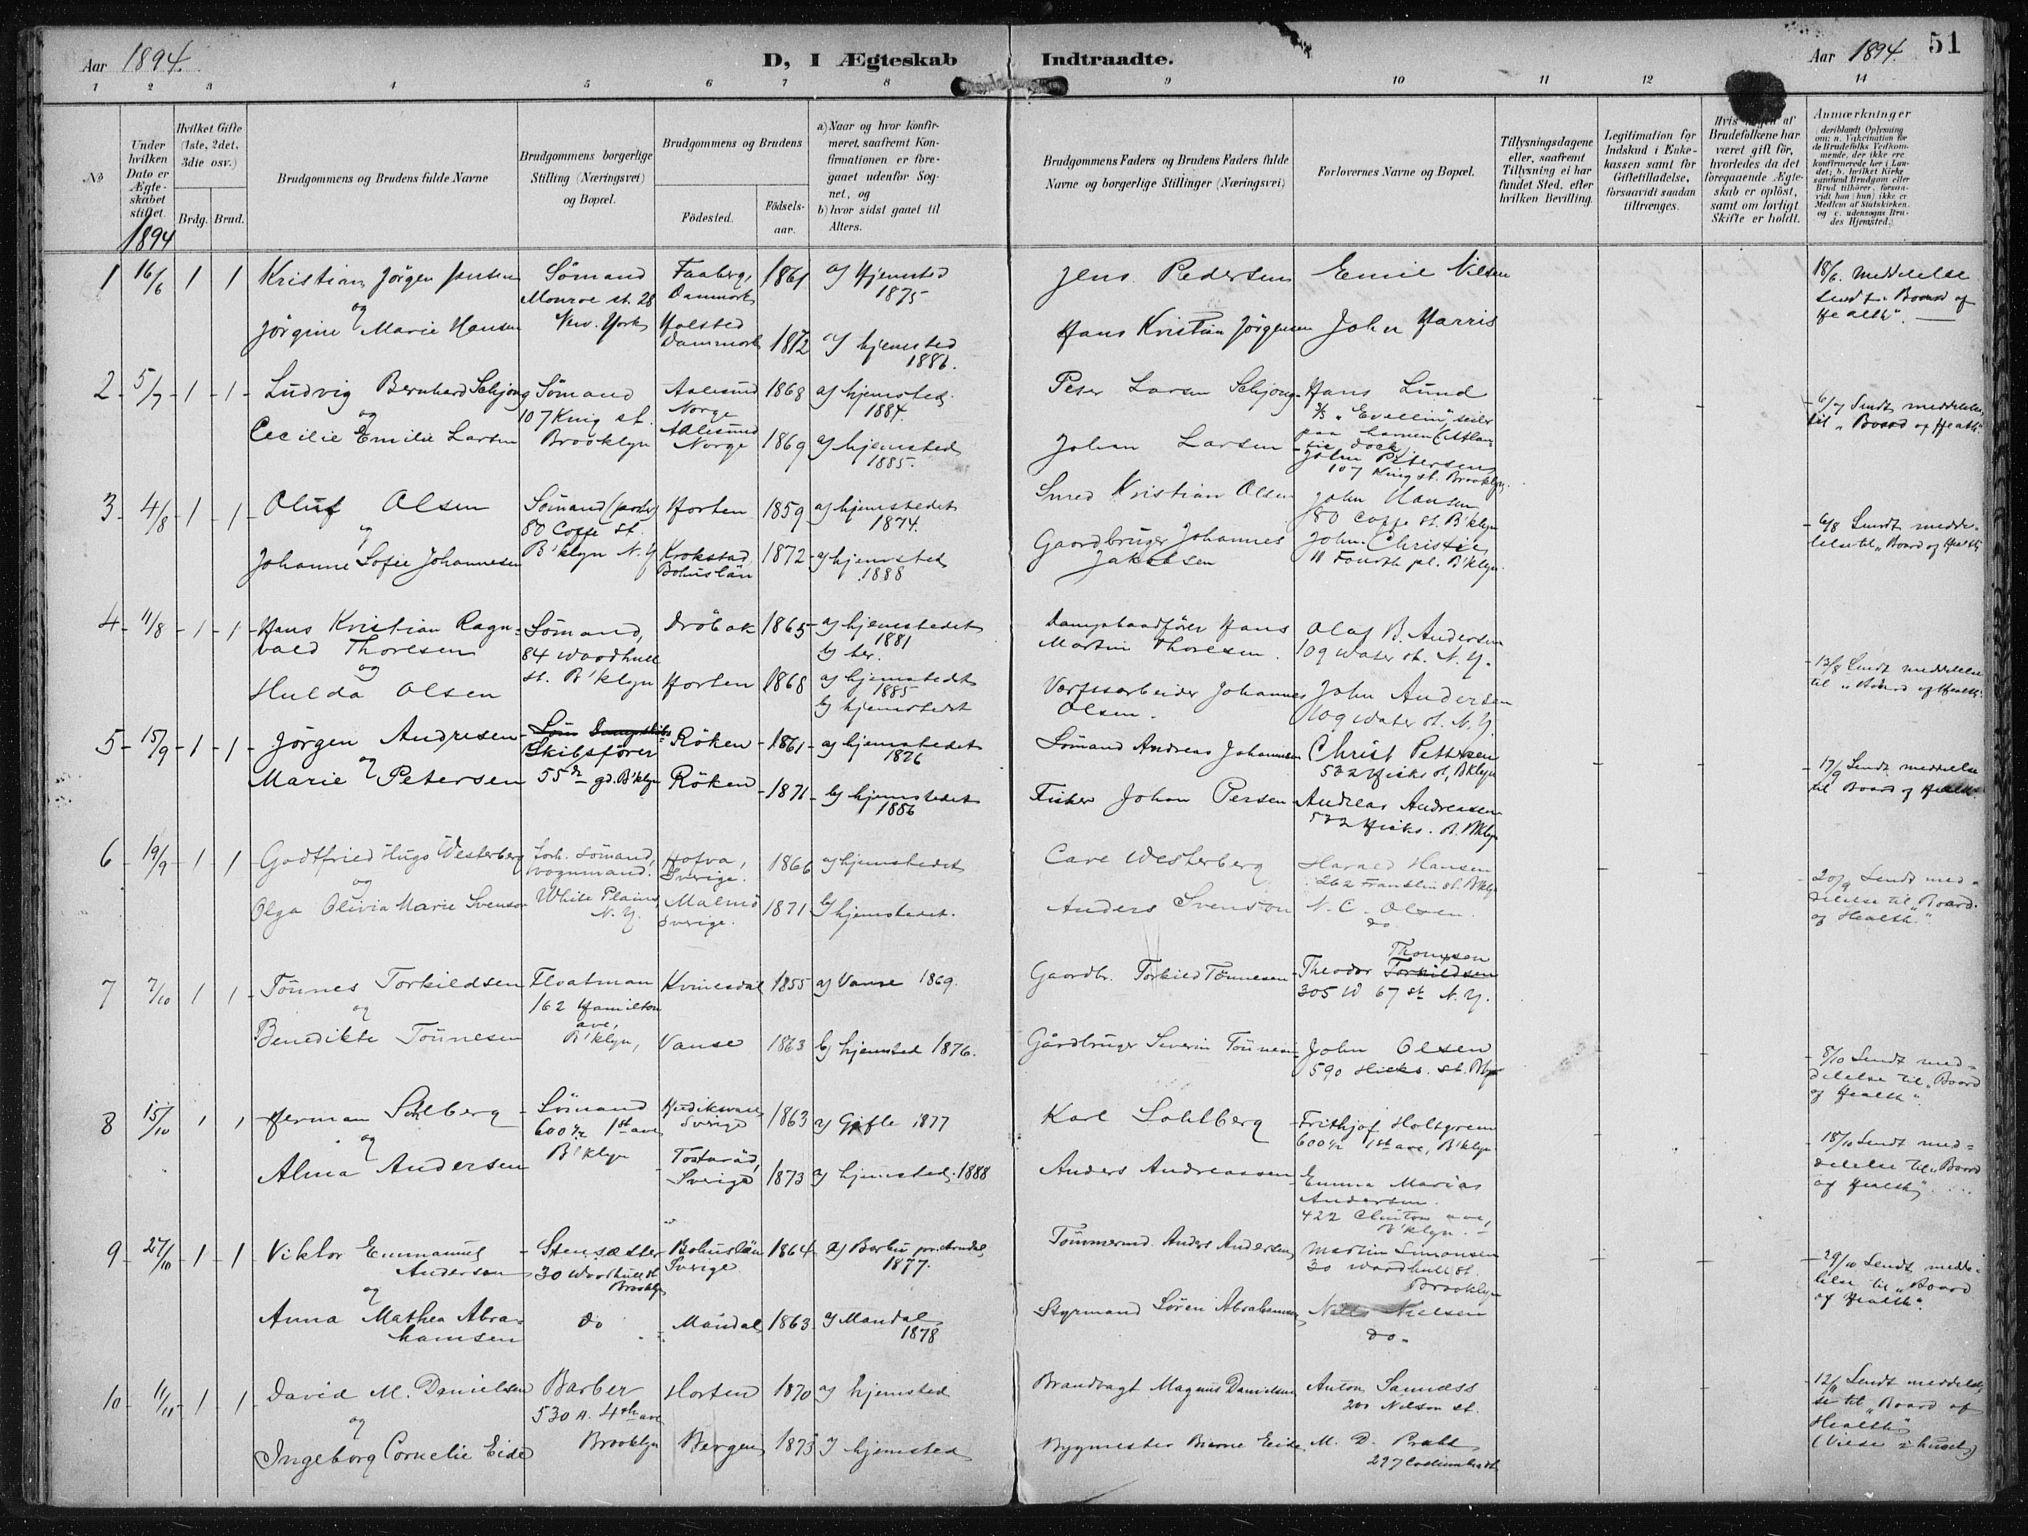 Aar 1894.
D, I Ægteskab Indtraadte.
Aar 1894. 51
1 2 3 4 5 6 7 8 9 10 11 12 14
No
Under hvilken Dato er Ægteskabet stiftet.
Hvilket Gifte (1ste, 2det, 3die osv.)
Brdg. Brud.
Brudgommens og Brudens fulde Navne
Brudgommens borgerlige Stilling (Næringsvei) og Bopæl.
Brudgommens og Brudens
Födested. Födsels-aar.
a) Naar og hvor konfirmeret, saafremt Konfirmationen er foregaaet udenfor Sognet, og
b) hvor sidst gaaet til Alters.
Brudgommens Faders og Brudens Faders fulde Navne og borgerlige Stillinger (Næringsvei)
Forlovernes Navne og Bopæl.
Tillysningsdagene eller, saafremt Tillysning ei har fundet Sted, efter hvilken Bevilling.
Legitimation for Indskud i Enkekassen samt for Giftetilladelse, forsaavidt saadan tiltrænges.
Hvis nogen af Brudefolkene har været gift før, hvorledes da det foregaaende Ægteskab er oplöst, samt om lovligt Skifte er holdt.
Anmærkninger
deriblandt Oplysning om: a. Vakcination for de Brudefolks Vedkommende, der ikke ere konfirmerede her i Landet; b. hvilket Kirkesamfund Brudgom eller Brud tilhörer, forsaavidt han (hun) ikke er Medlem af Statskirken, og c. udensogns Brudes Hjemsted.
1894
1 16/6 1 1 Kristian Jörgen Jensen Sömand Faaberg, 1861 a) Hjemsted Jens Pedersen Emil Nilsen 18/6. meddelelse
Monroe st. 28 Danmark 1875 sendt. Board of
og New. York Halsted Health".
Jörgine Marie Hansen Danmark 1872 a) hjemsted Hans Kristian Jörgensen John Harris
1886.
2 5/7 1 1 Ludvig Bernhard Schjong Sömand Aalesund 1868 a) hjemsted Peter Larsen Schjong Hans Lund
og 107 King st. Norge 1884. 6/7 Sendt meddelelse
Cecilie Emilie Larsen Brooklyn Aalesund 1869 a) hjemsted Johan Larsen til "Board of Health"
Norge 1885. John Petersen
107 King st. Brooklyn.
3 4/8 1 1 Oluf Olsen Sömand Horten 1859 a) hjemstedet Smed Kristian Olsen John Hansen
og 80 Coffe st. 1874. 80 Coffe st. B'klyn 6/8 Sendt medde-
Johanne Sofie Johannesen B'klyn N.Y Krokstad 1872 a) hjemsted Gaardbruger Johannes John. Christie lelse til "Board of Health"
Bohuslän 1888 Jakobsen 11 Fourth pl. B'klyn.
4 11/8 1 1 Hans Kristian Ragn- Sömand, Dröbak 1865 a) hjemstedet Dampbaadförer Hans Olaf B. Andersen
vald Thoresen 84 Woodhull 1881 Martin Thoresen. 109 Water st. N.Y.
og st. B'klyn b) her. 13/8 Sendt meddelelse
Hulda Olsen Horten 1868 a) hjemstedet Verftsarbeider Johannes John Andersen til "Board of Health".
1885 Olsen. 109 Water st. N.Y.
b) hjemstedet
5 15/9 1 1 Jörgen Andresen Skibsförer Röken 1861 a) hjemstedet Sömand Andreas Johannesen Christ Pettersen
og 55 B'klyn 1876 532 Hicks st, Bklyn 17/9 Sendt meddelelse
Marie Petersen Röken 1871 b) hjemstedet Fisker Johan Persen Andreas Andreasen til Board of Health.
1886 532 Hicks. st. Bklyn
6 19/9 1 1 Godtfried Hugo Westerberg forh. sömand, 1866 a) hjemstedet Carl Westerberg Harald Hansen
og vognmand. Sverige. 262 Franklin st. Bklyn 20/9 Sendt med-
Olga Olivia Marie Svenson White Plains, Malmö 1871 b) hjemstedet. Anders Svenson N. C. Olsen. delelse til "Board
N.Y. Sverige. do of Health".
7 7/10 1 1 Tönnes Torkildsen Floatman Kvinesdal 1855 a) Vanse 1869. Gaardbr. Torkild Tönnesen Theodor Thomsen
og 162 Hamilton 305 W 67 st. N.Y.
ave,
Benedikte Tönnesen B'klyn, Vanse 1863 b) hjemsted 1876. Gårdbruger Severin Tönnesen John Olsen
590 Hicks. st. Bklyn 8/10 Sendt med-
delelse til "Board
of Health".
8 15/10 1 1 Herman Sohlberg Sömand Sverige 1863 a) Gefle 1877 Karl Sohlberg Frithjof Holtgreen
og 600½ 1st ave 600½ 1st ave, B'klyn 18/10 Sendt med-
Alma Andersen B'klyn Sverige 1873 a) hjemsted. 1888 Anders Andreassen Emma Marias delelse til Board
Andersen. of Health"
422 Clinton ave,
B'klyn.
9 27/10 1 1 Viktor Emmanuel Stensætter Bohuslän 1864 a) Barbu pr. Arendal, Tömmermd. Anders Andersen Martin Simonsen
Andersen 30 Woodhull st. Sverige 1877. 30 Woodhull st. 29/10 Sendt medde-
og Brooklyn Brooklyn lelse til "Board
Anna Mathea Abra- do Mandal 1863 a) Mandal Styrmand Sören Abrahamsen Nielsen of Health".
hamsen 1878 do.
10 11/11 1 1 David M. Danielsen Barber Horten 1870 a) hjemsted Brandvagt Magnus Danielsen Anton Samdess 12/11 Sendt meddelel-
og 530 A. 4th ave 200 Nelson st. se til "Board of
Ingeborg Cornelie Eide Brooklyn Bergen 1875 a) hjemsted Bygmester Bierne Eide M. D. Prahl Health"
297 Columbia st (Viede i huset)